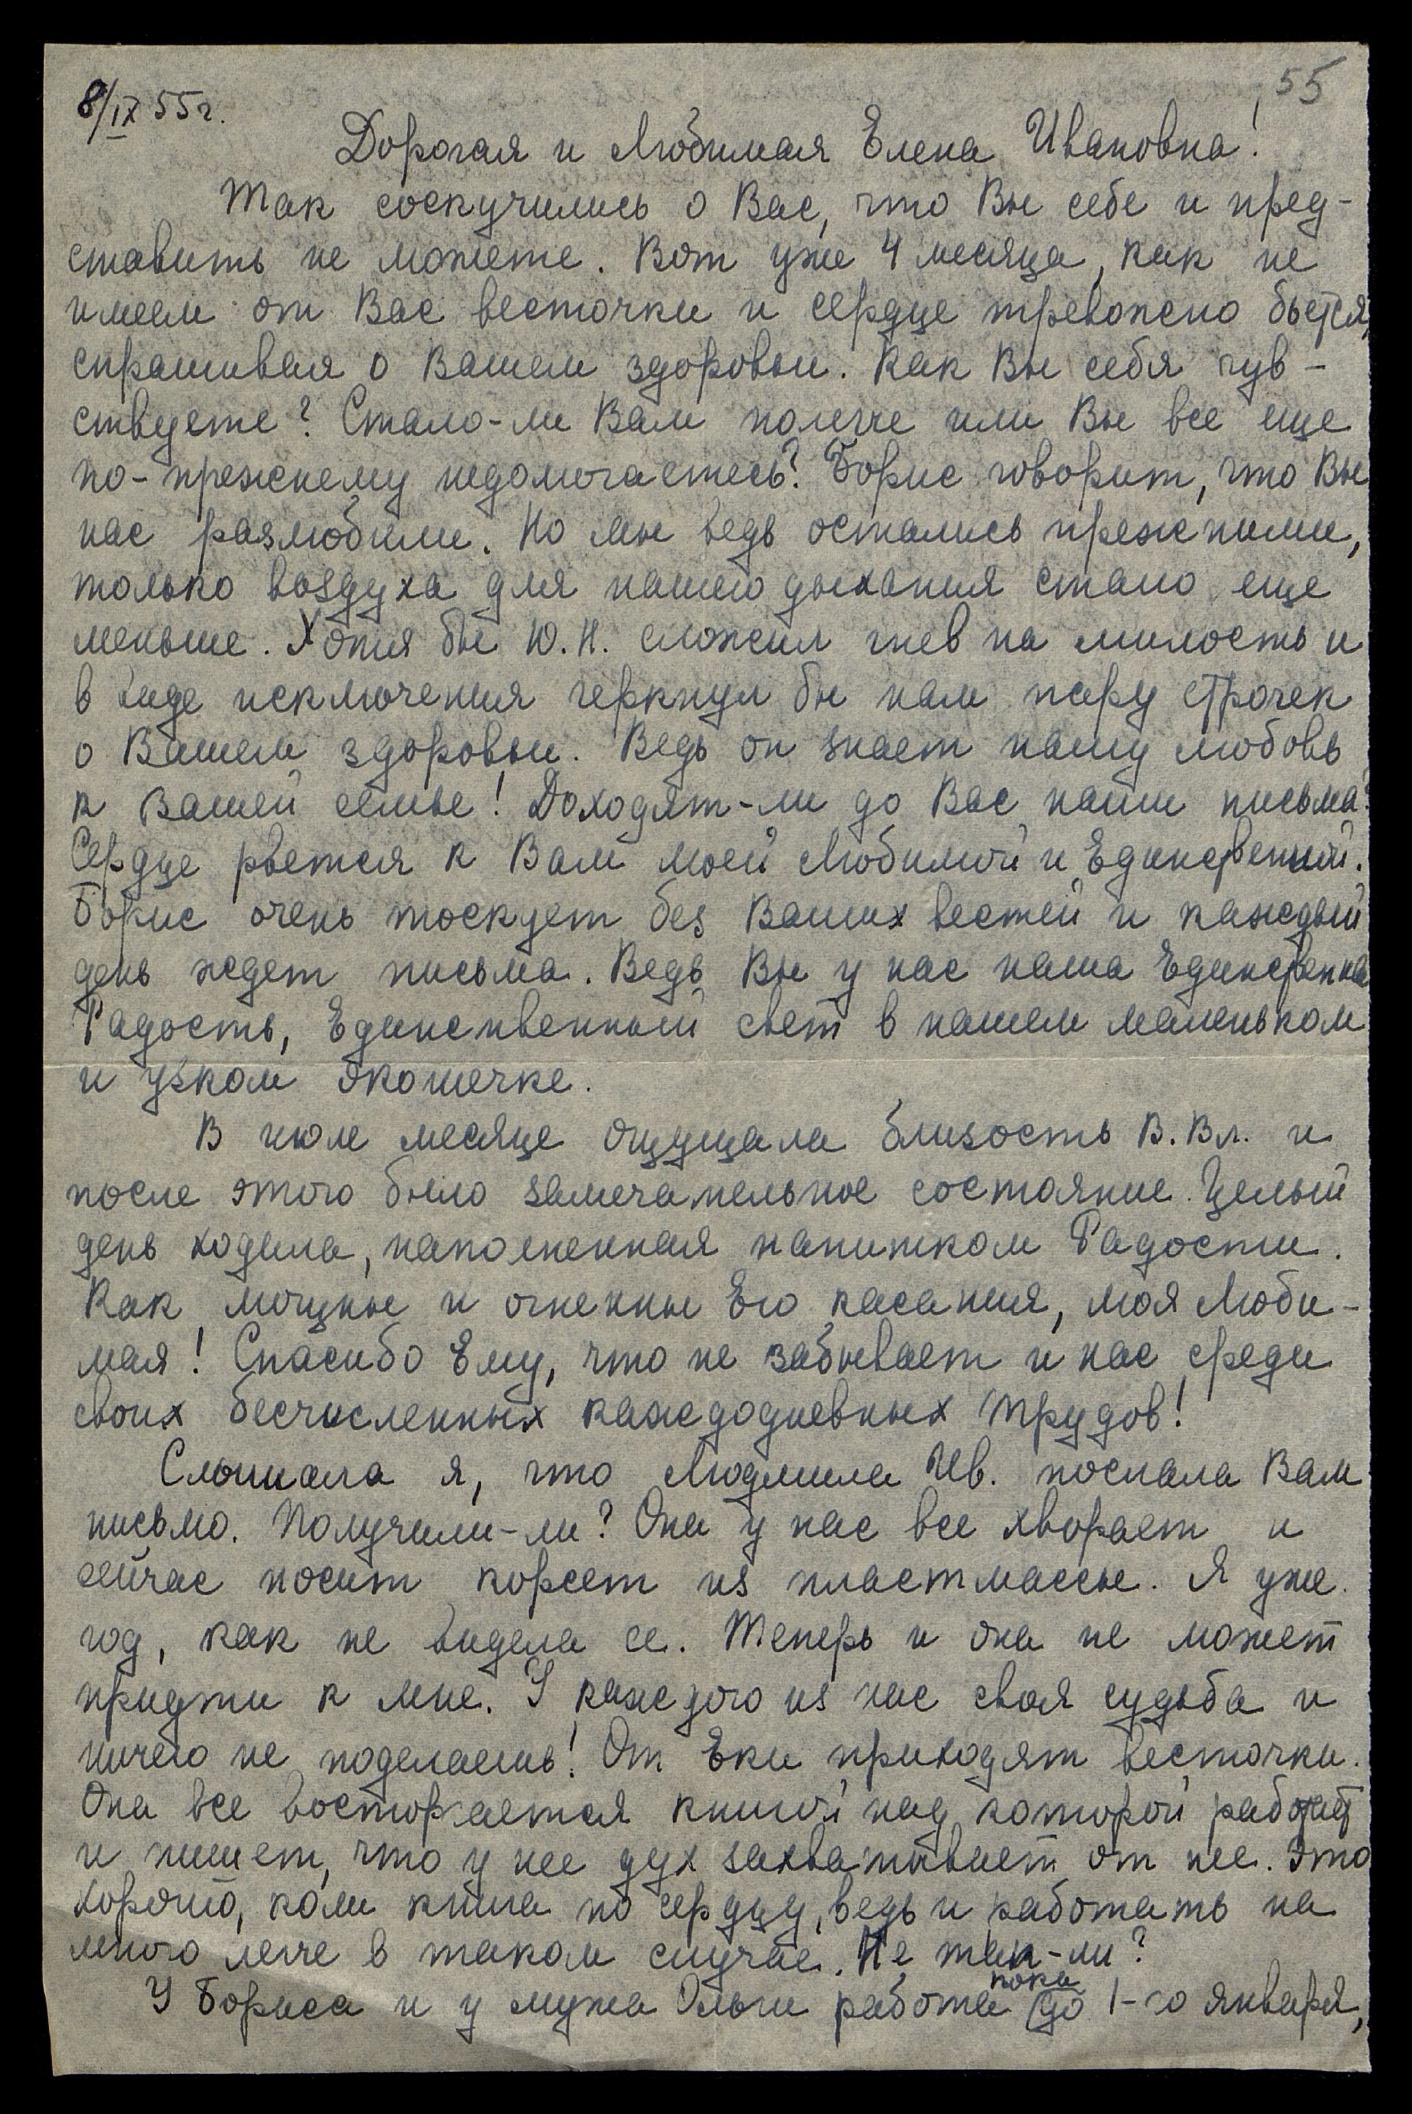 55
8/IX 55 г.
Дорогая и Любимая Елена Ивановна!
Так соскучились о Вас, что Вы себе и пред-
ставить не можете. Вот уже 4 месяца, как не
имеем от Вас весточки и сердце тревожно бьется,
спрашивая о Вашем здоровьи. Как Вы себя чув-
ствуете? Стало-ли Вам полегче или Вы все еще
по-прежнему недомогаетесь? Борис говорит, что Вы
нас разлюбили. Но мы ведь остались прежними,
только воздуха для нашего дыхания стало еще
меньше. Хотя бы Ю.Н. сложил гнев на милость и
в виде исключения черкнул бы нам пару строчек
о Вашем здоровьи. Ведь он знает нашу любовь
к Вашей семье! Доходят-ли до Вас наши письма?
Сердце рвется к Вам моей Любимой и Единственной.
Борис очень тоскует без Ваших вестей и каждый
день ждет письма. Ведь Вы у нас наша Единственная
Радость, Единственный свет в нашем маленьком
и узком окошечке.
В июле месяце ощущала близость В.Вл. и
после этого было замечательное состояние. Целый
день ходила, наполненная напитком Радости.
Как мощны и огненны Его касания, моя Люби-
мая! Спасибо Ему, что не забывает и нас среди
своих бесчисленных каждодневных трудов!
Слышала я, что Людмила Ив. послала Вам
письмо. Получили-ли? Она у нас все хворает и
сейчас носит корсет из пластмассы. Я уже
год, как не видела ее. Теперь и она не может
придти к мне. У каждого из нас своя судьба и
ничего не поделаешь! От Еки приходят весточки.
Она все восторгается книгой над которой работает
и пишет, что у нее дух захватывает от нее. Это
хорошо, коли книга по сердцу, ведь и работать на
много легче в таком случае. Не так-ли?
пока
У Бориса и у мужа Ольги работа до 1-го января,